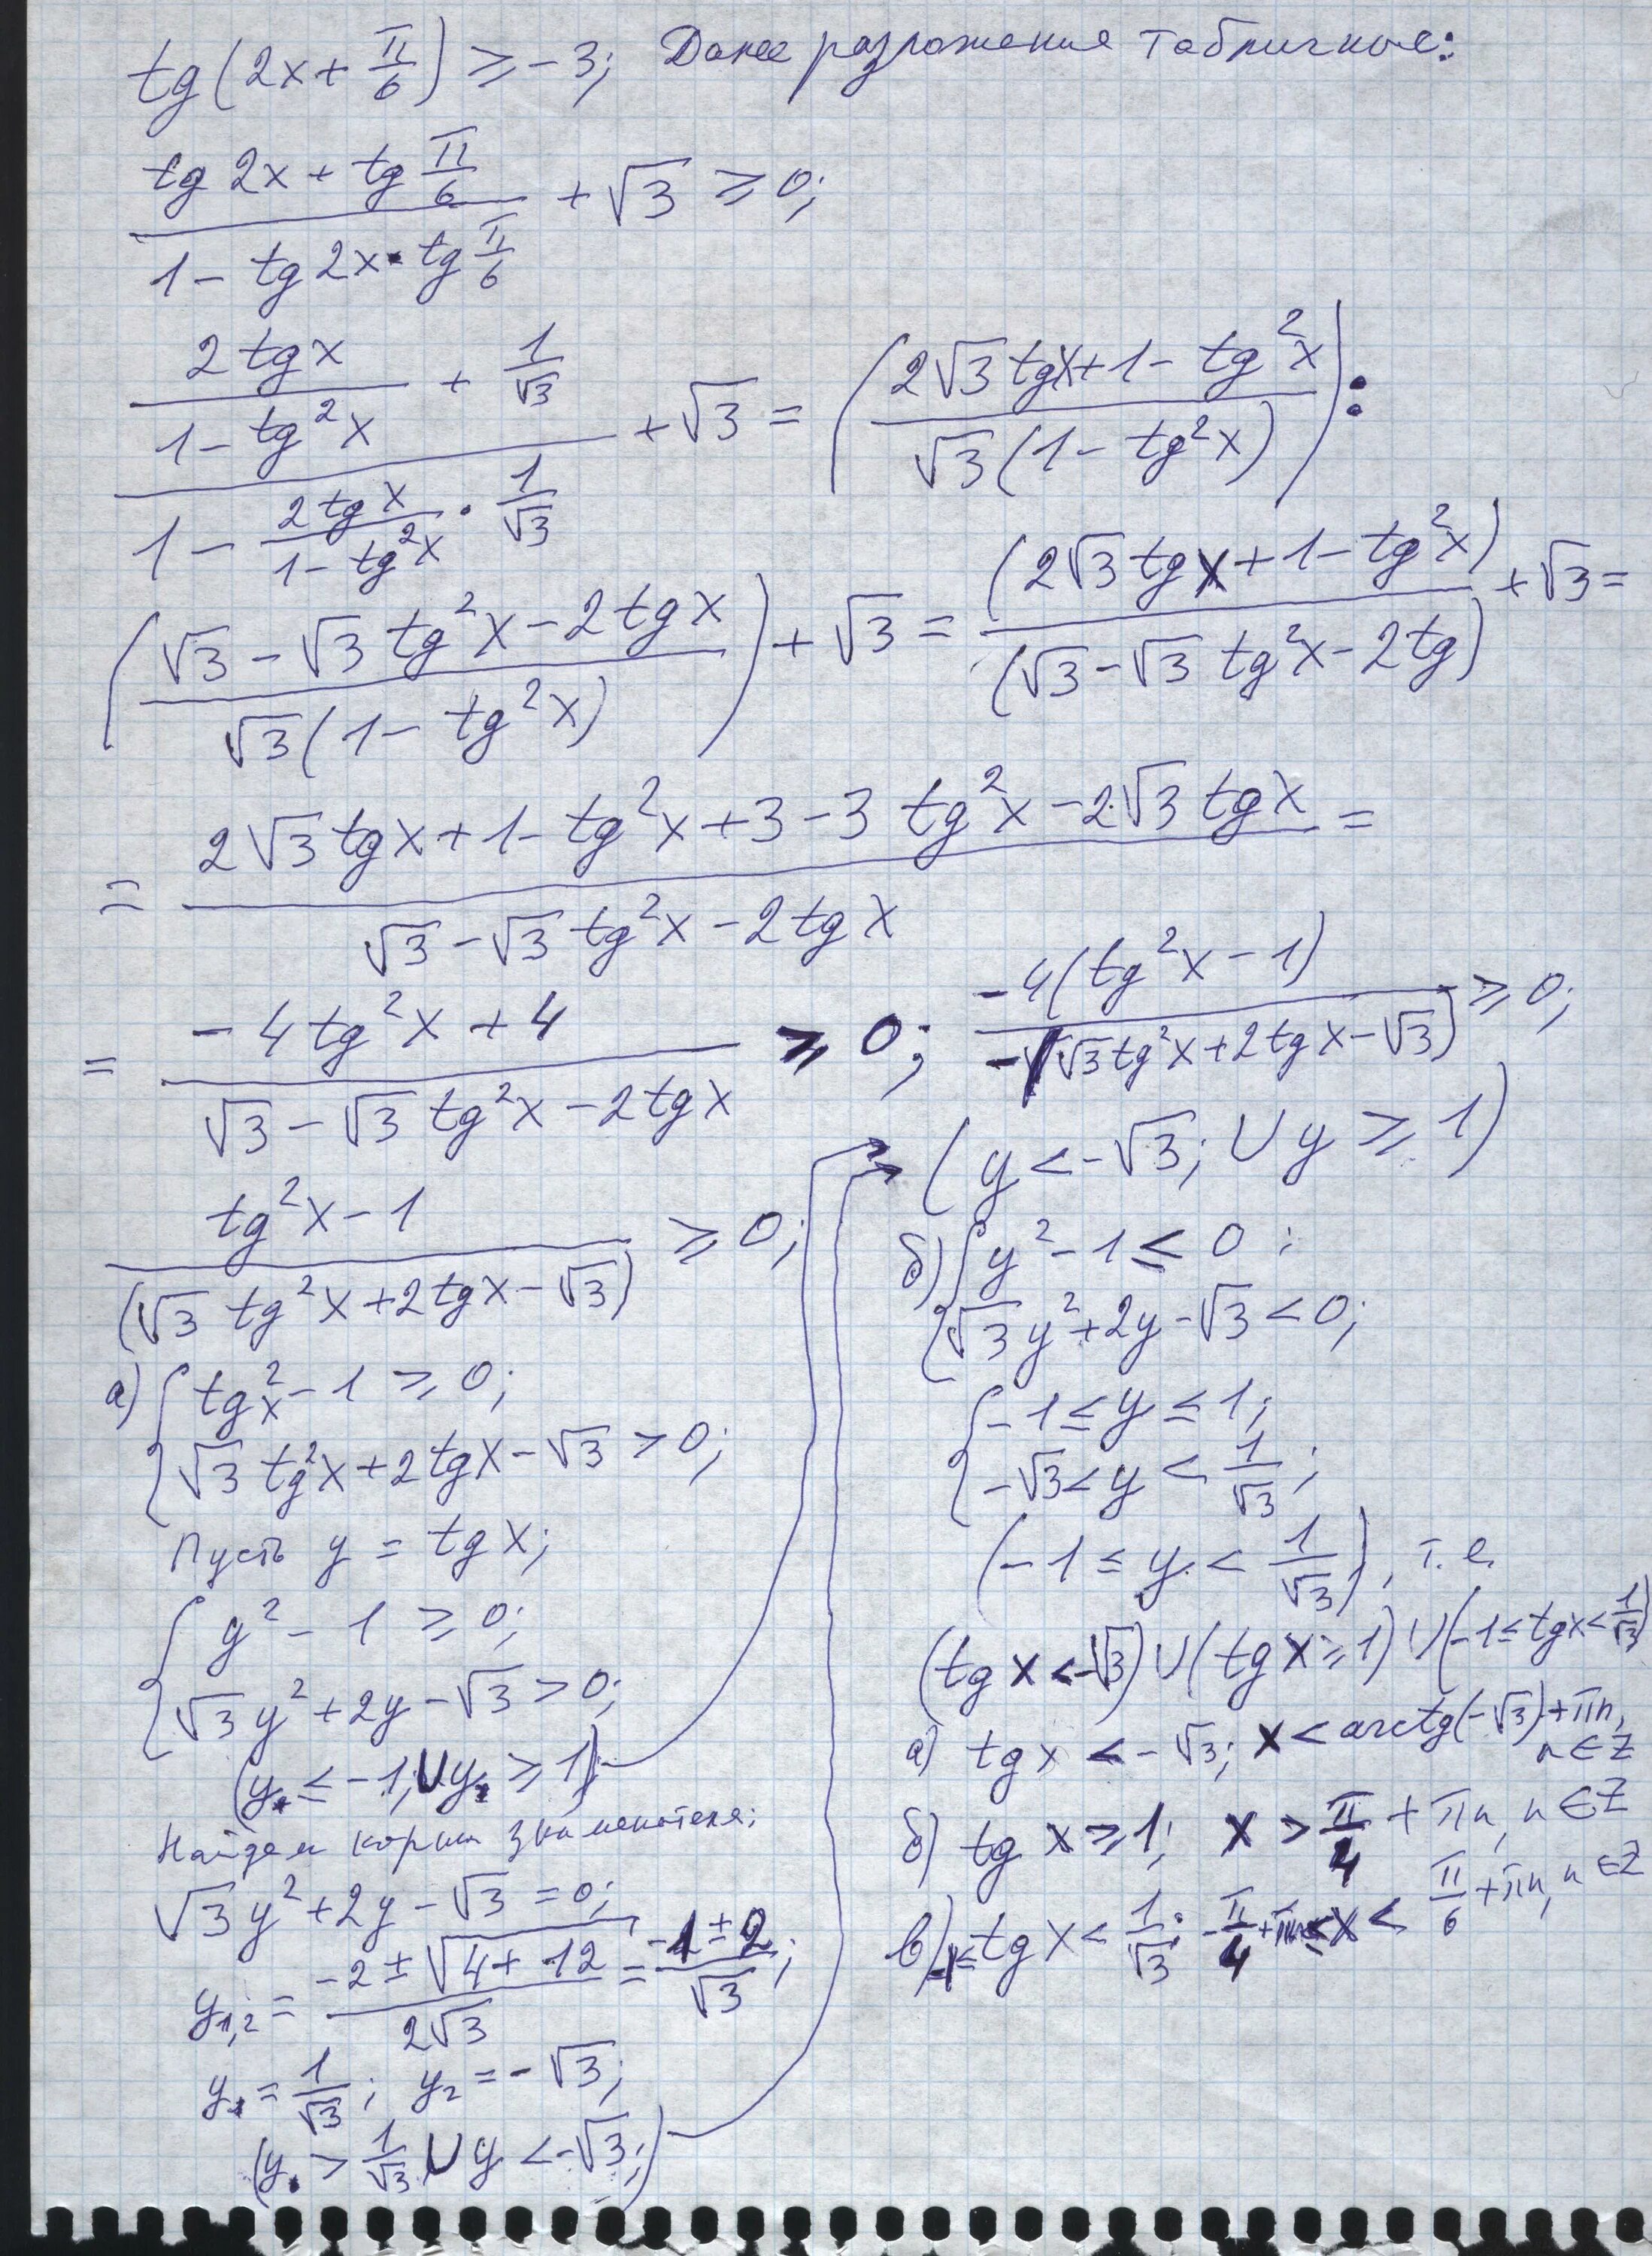 tg(2x + π/6) ≥ -3; Далее разложение табличные:
(tg 2x + tg π/6)/(1 - tg 2x · tg π/6) + √3 ≥ 0;
((2 tg x)/(1 - tg²x) + 1/√3)/(1 - (2 tg x)/(1 - tg²x) · 1/√3) + √3 = ((2√3 tg x + 1 - tg²x)/(√3(1 - tg²x))) :
((√3 - √3 tg²x - 2 tg x)/(√3(1 - tg²x))) + √3 = (2√3 tg x + 1 - tg²x)/(√3 - √3 tg²x - 2 tg) + √3 =
= (2√3 tg x + 1 - tg²x + 3 - 3 tg²x - 2√3 tg x)/(√3 - √3 tg²x - 2 tg x) =
= (-4 tg²x + 4)/(√3 - √3 tg²x - 2 tg x) ≥ 0; (-4(tg²x - 1))/(-(√3 tg²x + 2 tg x - √3)) ≥ 0;
(tg²x - 1)/(√3 tg²x + 2 tg x - √3) ≥ 0;
а) { tg²x - 1 ≥ 0;
√3 tg²x + 2 tg x - √3 > 0;
Пусть y = tg x;
{ y² - 1 ≥ 0;
√3 y² + 2y - √3 > 0;
(y ≤ -1; ∪ y ≥ 1);
Найдем корни знаменателя:
√3 y² + 2y - √3 = 0;
y₁,₂ = (-2 ± √(4 + 12))/(2√3) = (-1 ± 2)/√3;
y₁ = 1/√3; y₂ = -√3;
(y > 1/√3 ∪ y < -√3;)
(y < -√3; ∪ y ≥ 1)
б) { y² - 1 ≤ 0 ;
√3 y² + 2y - √3 < 0;
{ -1 ≤ y ≤ 1;
-√3 < y < 1/√3;
(-1 ≤ y < 1/√3), т.е.
(tg x < -√3) ∪ (tg x ≥ 1) ∪ (-1 ≤ tg x < 1/√3)
а) tg x < -√3; x < arctg(-√3) + πn, n ∈ Z
б) tg x ≥ 1; x > π/4 + πn, n ∈ Z
в) -1 ≤ tg x < 1/√3; -π/4 + πn ≤ x < π/6 + πn, n ∈ Z